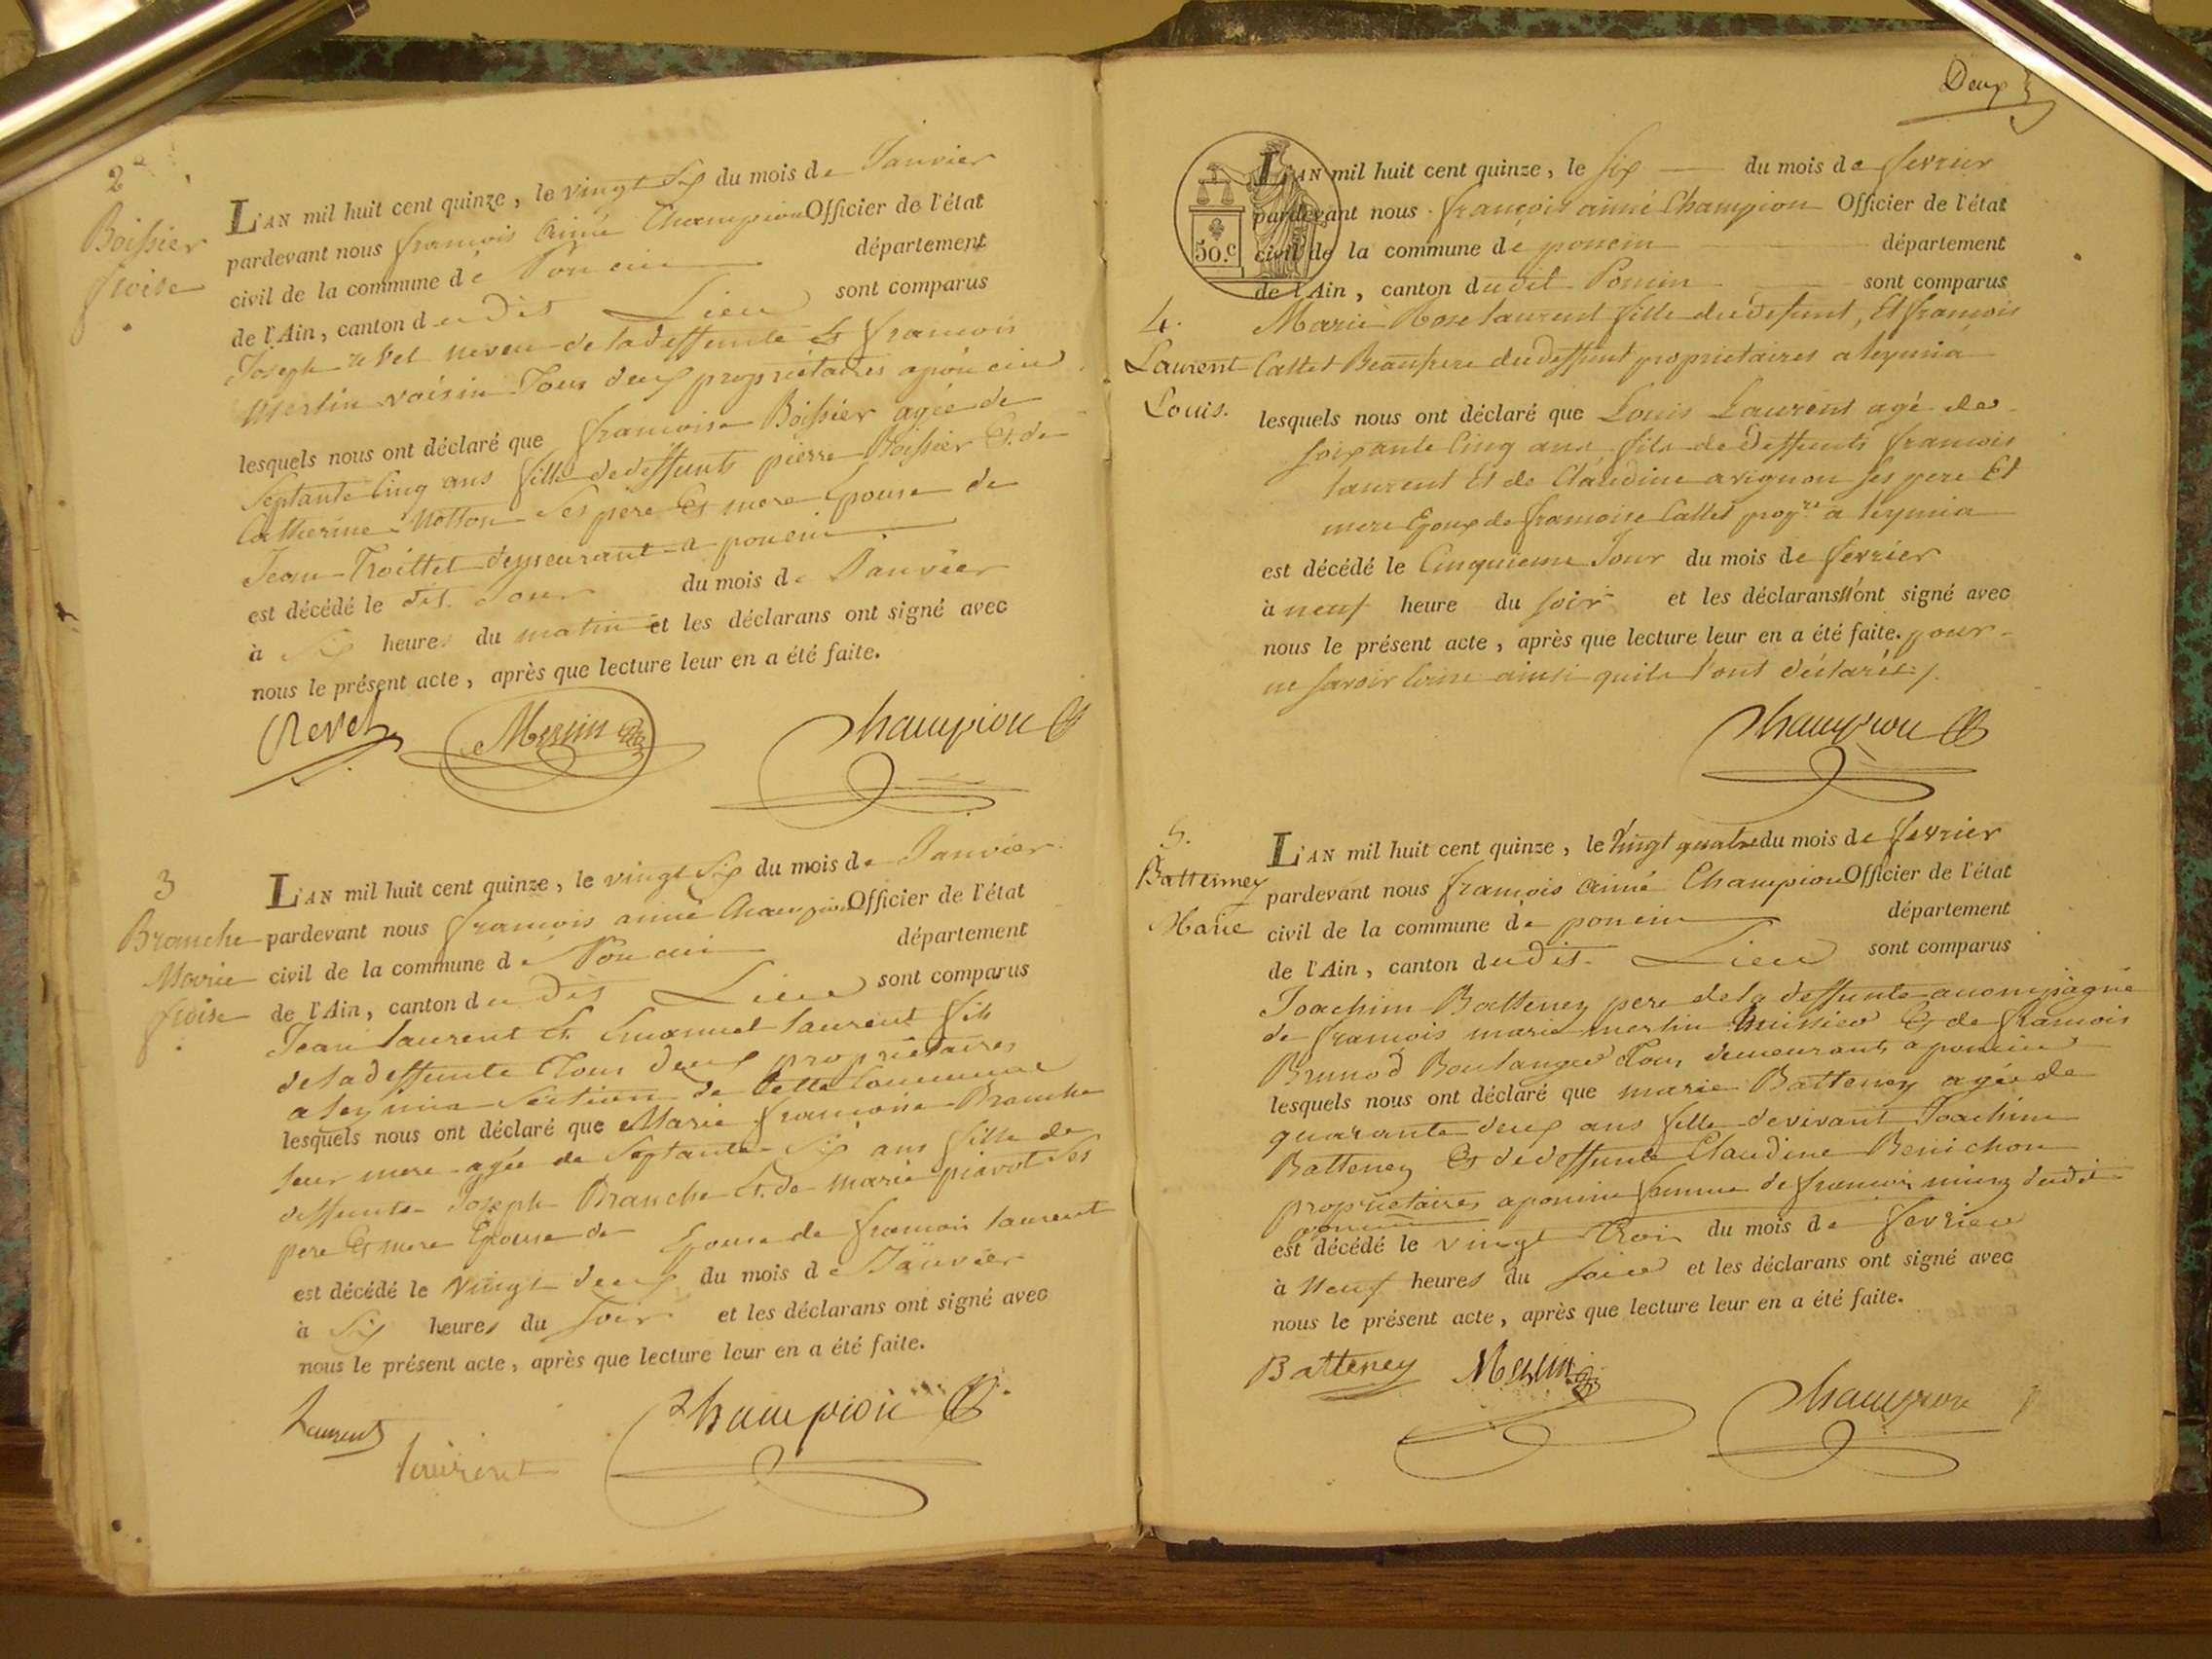 2e
Boissier
froise
L'AN mil huit cent quinze, le vingt Six du mois de Janvier
pardevant nous francois Aimé Champion Officier de l'état
civil de la commune de Poncin département
de l'Ain, canton du dit Lieu sont comparus
Joseph revel neveu de la deffunte Et francois
Merlin voisin Tous deux propriétaires a poncin
lesquels nous ont déclaré que francoise Boissier agée de
Septante Cinq ans fille de deffunts pierre Boissier Et de
Catherine Ses père Et mere Epouse de
Jean Troillet demeurant a poncin
est décédé le dit Jour du mois de Janvier
à Six heures du matin et les déclarans ont signé avec
nous le présent acte, après que lecture leur en a été faite.
Revel Merlin Champion
3
Branche
Marie
froise
L'AN mil huit cent quinze, le vingt Six du mois de Janvier
pardevant nous francois aimé Champion Officier de l'état
civil de la commune de Poncin département
de l'Ain, canton du dit Lieu sont comparus
Jean laurent Et Emanuel laurent fils
de la deffunte Tous deux propriétaires
a leymia Section de Cette Commune
lesquels nous ont déclaré que Marie francoise Branche
leur mere agée de Septante Six ans fille de
deffunts Joseph Branche Et de marie piavot Ses
pere Et mere Epouse de Epouse de francois laurent
est décédé le Vingt deux du mois de Janvier
à Six heures du Soir et les déclarans ont signé avec
nous le présent acte, après que lecture leur en a été faite.
Laurent Champion
laurent
Deux
50.c
L'AN mil huit cent quinze, le six du mois de fevrier
pardevant nous francois aimé Champion Officier de l'état
civil de la commune de poncin département
de l'Ain, canton dudit Poncin sont comparus
4.
Laurent
Louis.
Marie Rose laurent fille du défunt, Et francois
Callet Beaufrere du deffunt proprietaires a leymia
lesquels nous ont déclaré que Louis Laurent agé de
soixante Cinq ans fils de deffunts francois
laurent Et de Claudine avignon ses pere Et
mere Epoux de francoise Callet propre a leymia
est décédé le Cinquieme Jour du mois de fevrier
à neuf heure du soir et les déclarans n'ont signé avec
nous le présent acte, après que lecture leur en a été faite. pour
ne savoir Ecrire ainsi quils l'ont déclarés /.
Champion
5.
Batteney
Marie
L'AN mil huit cent quinze, le Vingt quatre du mois de fevrier
pardevant nous francois aimé Champion Officier de l'état
civil de la commune de poncin département
de l'Ain, canton du dit Lieu sont comparus
Joachim Batteney pere de la deffunte accompagné
de francois marie merlin huissier Et de francois
Brunod Boulanger Tous demeurants a poncin
lesquels nous ont déclaré que marie Batteney agée de
quarante deux ans fille de vivant Joachim
Batteney Et de deffunte Claudine Benichon
propriétaires a poncin femme de francois dudit
poncin
est décédé le vingt Trois du mois de fevrier
à Neuf heures du soir et les déclarans ont signé avec
nous le présent acte, après que lecture leur en a été faite.
Batteney Merlin Champion